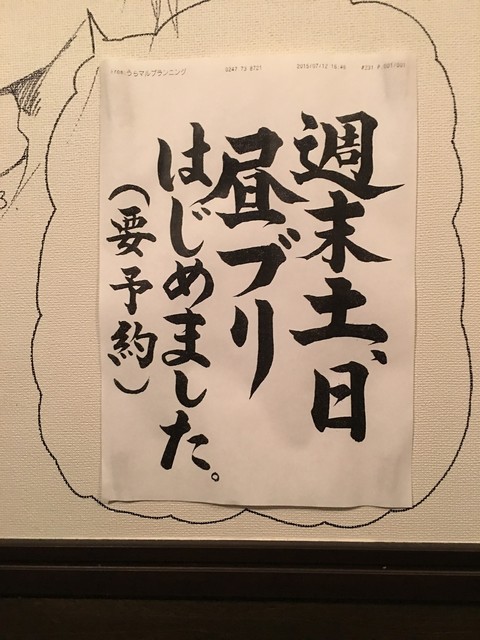 うらマルプランニング 0247 73 8721 2015/07/12 16:46 #231 P.001/001
週末土、日
昼ブリ
はじめました。
（要予約）